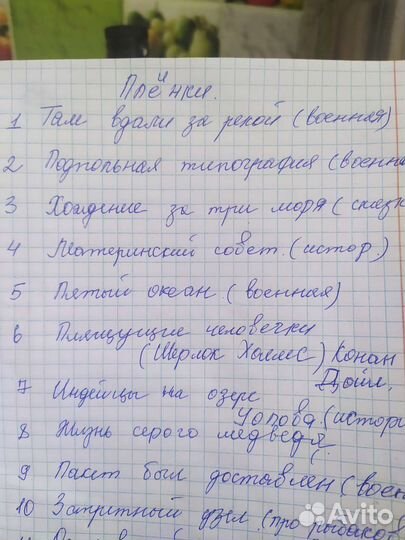 Плёнки.
1 Там вдали за рекой (военная)
2 Подпольная типография (военна
3 Хождение за три моря (сказк
4 Материнский совет. (истор.)
5 Пятый океан. (военная)
6 Пляшущие человечки
(Шерлок Холмс) Конан
Дойл.
7 Индейцы на озере
(истори
8 Жизнь серого медведя.
9 Пакет был доставлен (воен
10 Запретный узел. (про рыбаков
11
Avito